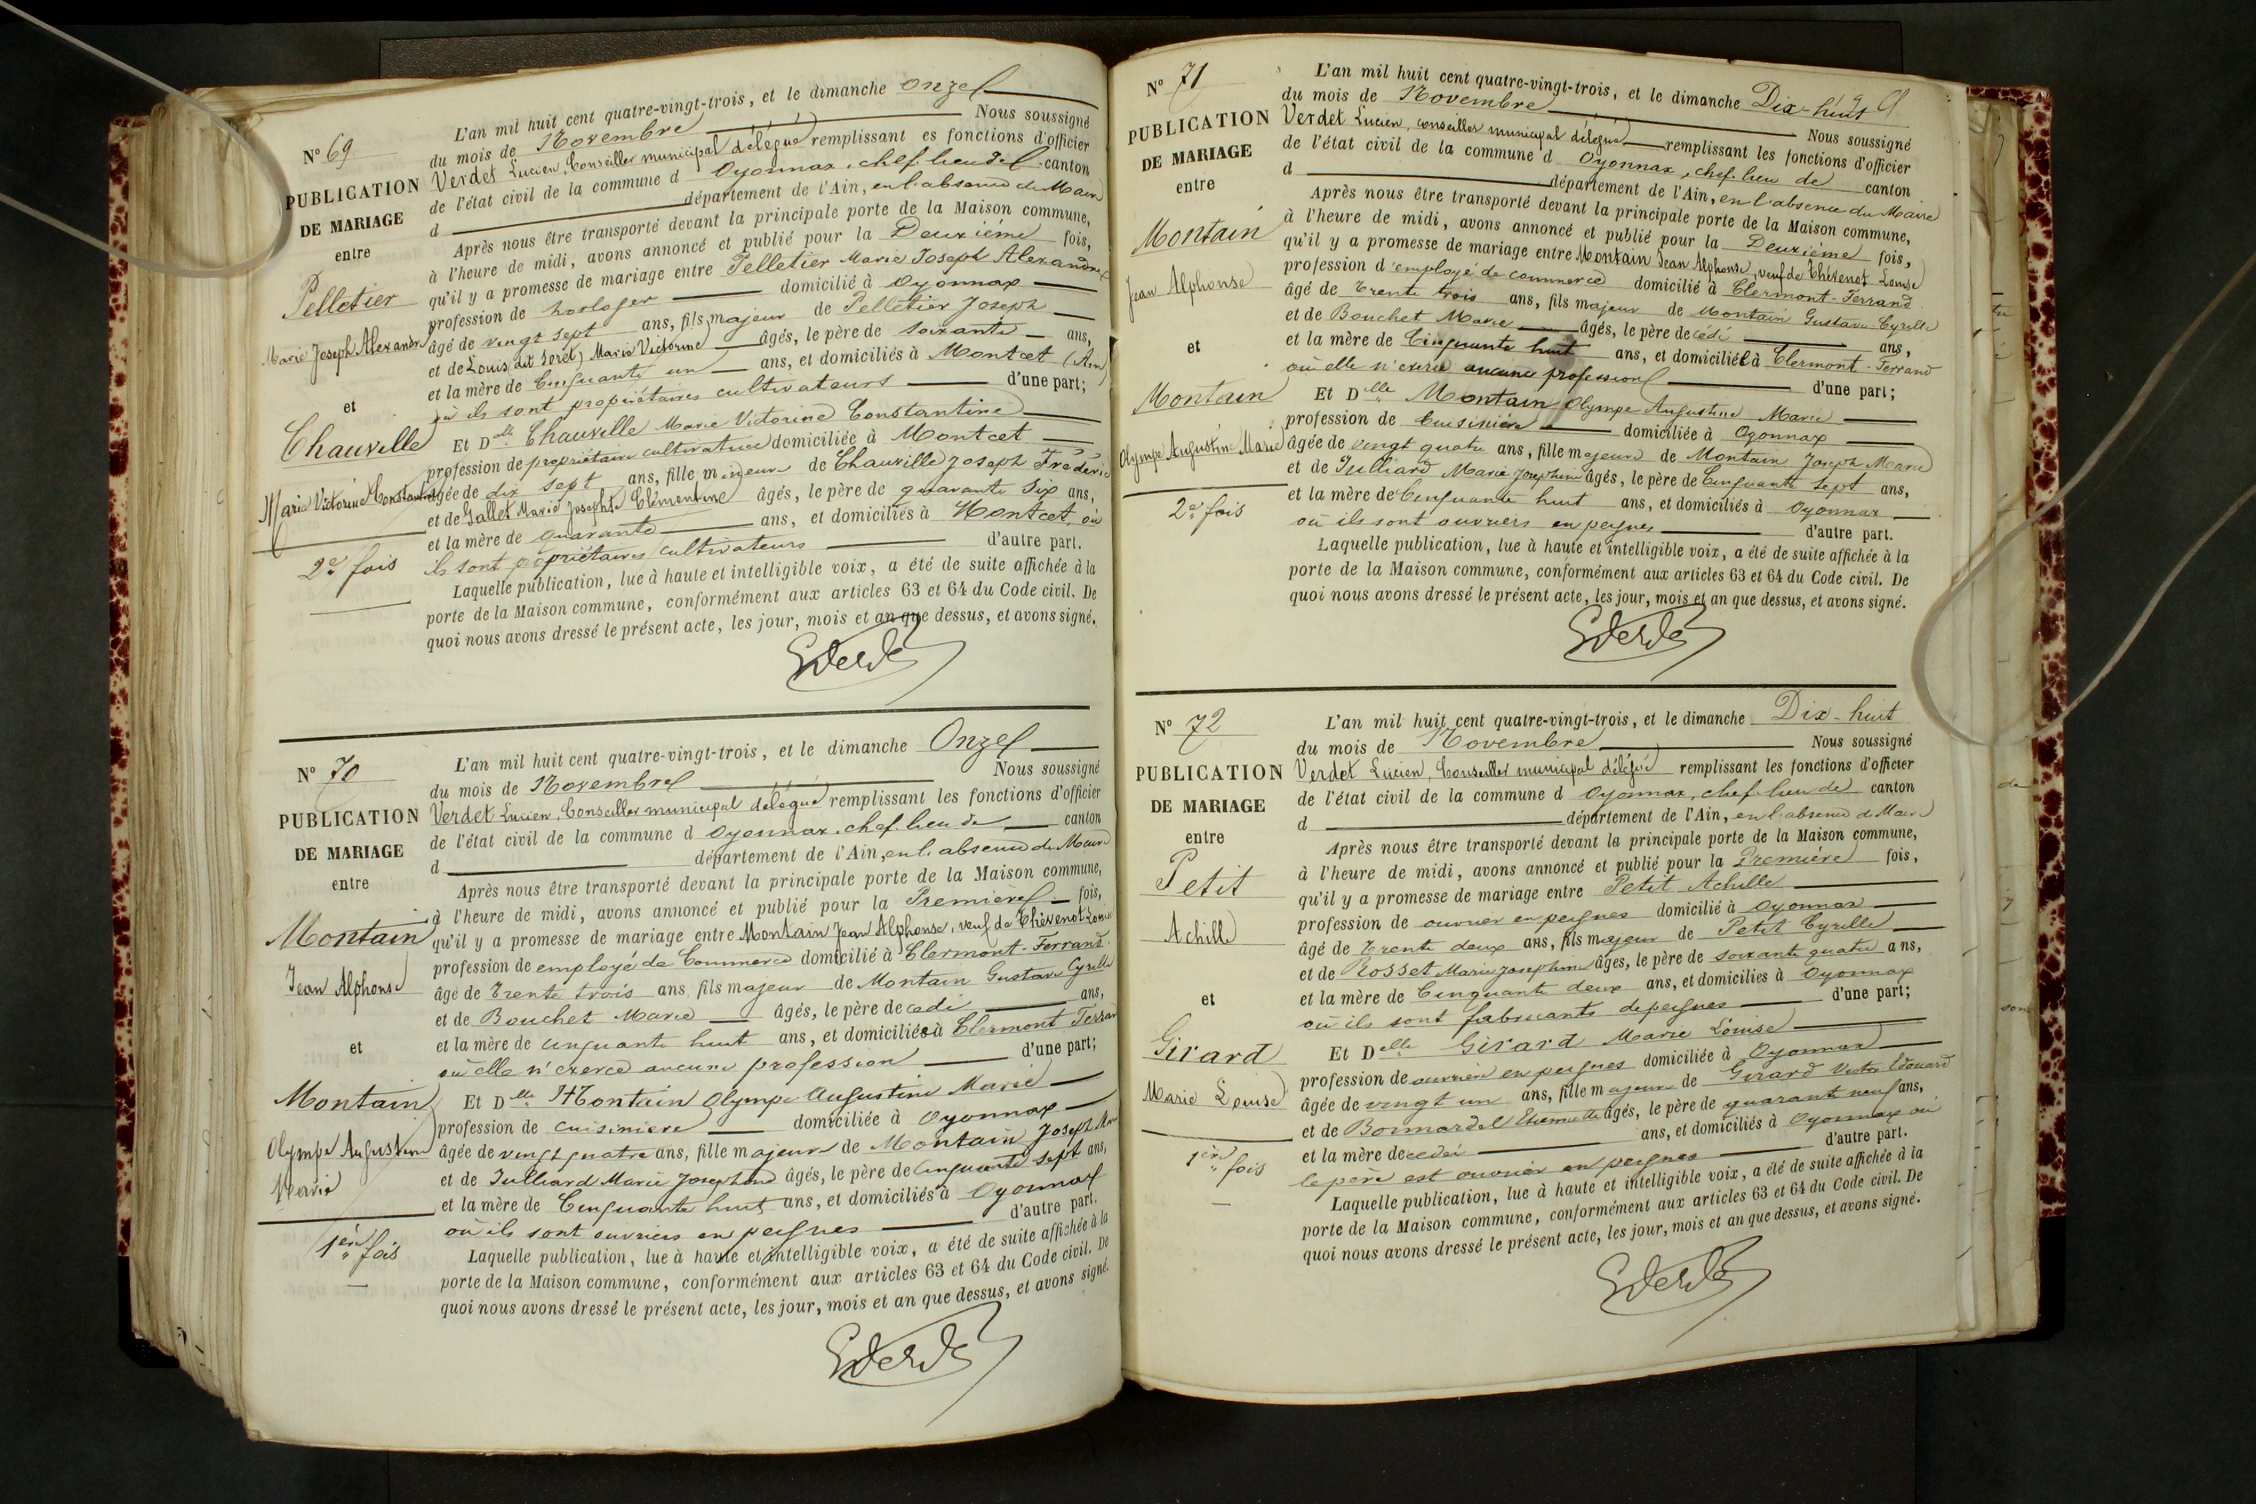 N° 69
PUBLICATION
DE MARIAGE
entre
Pelletier
Marie Joseph Alexandre
et
Chauville
Marie Victorine Constantine
2e fois
L'an mil huit cent quatre-vingt-trois, et le dimanche onze
du mois de Novembre Nous soussigné
Verdet Lucien, Conseiller municipal délégué remplissant es fonctions d'officier
de l'état civil de la commune d Oyonnax, chef-lieu de canton
d département de l'Ain, en l'absence du Maire
Après nous être transporté devant la principale porte de la Maison commune,
à l'heure de midi, avons annoncé et publié pour la Deuxième fois,
qu'il y a promesse de mariage entre Pelletier Marie Joseph Alexandre
profession de horloger domicilié à Oyonnax
âgé de vingt sept ans, fils majeur de Pelletier Joseph
et de Louis dit Seret, Marie Victorine âgés, le père de soixante ans,
et la mère de Cinquante un ans, et domiciliés à Montcet (Ain)
où ils sont propriétaires cultivateurs d'une part;
Et Delle Chauville Marie Victorine Constantine
profession de propriétaire cultivatrice domiciliée à Montcet
âgée de dix sept ans, fille mineure de Chauville Joseph Frédéric
et de Gallet Marie Josephte Clémentine âgés, le père de quarante six ans,
et la mère de quarante ans, et domiciliés à Montcet, où
ils sont propriétaires cultivateurs d'autre part.
Laquelle publication, lue à haute et intelligible voix, a été de suite affichée à la
porte de la Maison commune, conformément aux articles 63 et 64 du Code civil. De
quoi nous avons dressé le présent acte, les jour, mois et an que dessus, et avons signé.
N° 70
PUBLICATION
DE MARIAGE
entre
Montain
Jean Alphonse
et
Montain
Olympe Augustine
Marie
1ère fois
L'an mil huit cent quatre-vingt-trois, et le dimanche Onze
du mois de Novembre Nous soussigné
Verdet Lucien, Conseiller municipal délégué remplissant les fonctions d'officier
de l'état civil de la commune d Oyonnax, chef-lieu de canton
d département de l'Ain, en l'absence du Maire
Après nous être transporté devant la principale porte de la Maison commune,
à l'heure de midi, avons annoncé et publié pour la Première fois,
qu'il y a promesse de mariage entre Montain Jean Alphonse, veuf de Thévenot Louise
profession de employé de Commerce domicilié à Clermont-Ferrand
âgé de Trente trois ans, fils majeur de Montain Gustave Cyrille
et de Bouchet Marie âgés, le père décédé ans,
et la mère de cinquante huit ans, et domiciliée à Clermont Ferrand
où elle n'exerce aucune profession d'une part;
Et Delle Montain Olympe Augustine Marie
profession de cuisinière domiciliée à Oyonnax
âgée de vingt quatre ans, fille majeure de Montain Joseph Marie
et de Julliard Marie Josephine âgés, le père de Cinquante sept ans,
et la mère de Cinquante huit ans, et domiciliés à Oyonnax
où ils sont ouvriers en peignes d'autre part.
Laquelle publication, lue à haute et intelligible voix, a été de suite affichée à la
porte de la Maison commune, conformément aux articles 63 et 64 du Code civil. De
quoi nous avons dressé le présent acte, les jour, mois et an que dessus, et avons signé.
N° 71
PUBLICATION
DE MARIAGE
entre
Montain
Jean Alphonse
et
Montain
Olympe Augustine Marie
2e fois
L'an mil huit cent quatre-vingt-trois, et le dimanche Dix-huit
du mois de Novembre Nous soussigné
Verdet Lucien, conseiller municipal délégué remplissant les fonctions d'officier
de l'état civil de la commune d Oyonnax, chef-lieu de canton
d département de l'Ain, en l'absence du Maire
Après nous être transporté devant la principale porte de la Maison commune,
à l'heure de midi, avons annoncé et publié pour la Deuxième fois,
qu'il y a promesse de mariage entre Montain Jean Alphonse, veuf de Thévenot Louise
profession d'employé de commerce domicilié à Clermont-Ferrand
âgé de Trente trois ans, fils majeur de Montain Gustave Cyrille
et de Bouchet Marie âgés, le père décédé ans,
et la mère de Cinquante huit ans, et domiciliée à Clermont-Ferrand
où elle n'exerce aucune profession d'une part;
Et Delle Montain Olympe Augustine Marie
profession de Cuisinière domiciliée à Oyonnax
âgée de vingt quatre ans, fille majeure de Montain Joseph Marie
et de Julliard Marie Josephine âgés, le père de Cinquante sept ans,
et la mère de Cinquante huit ans, et domiciliés à Oyonnax
où ils sont ouvriers en peignes d'autre part.
Laquelle publication, lue à haute et intelligible voix, a été de suite affichée à la
porte de la Maison commune, conformément aux articles 63 et 64 du Code civil. De
quoi nous avons dressé le présent acte, les jour, mois et an que dessus, et avons signé.
N° 72
PUBLICATION
DE MARIAGE
entre
Petit
Achille
et
Girard
Marie Louise
1ère fois
L'an mil huit cent quatre-vingt-trois, et le dimanche Dix-huit
du mois de Novembre Nous soussigné
Verdet Lucien, Conseiller municipal délégué remplissant les fonctions d'officier
de l'état civil de la commune d Oyonnax, chef-lieu de canton
d département de l'Ain, en l'absence du Maire
Après nous être transporté devant la principale porte de la Maison commune,
à l'heure de midi, avons annoncé et publié pour la Première fois,
qu'il y a promesse de mariage entre Petit Achille
profession de ouvrier en peignes domicilié à Oyonnax
âgé de Trente deux ans, fils majeur de Petit Cyrille
et de Rosset Marie Josephine âgés, le père de soixante quatre ans,
et la mère de Cinquante deux ans, et domiciliés à Oyonnax
où ils sont fabricants de peignes d'une part;
Et Delle Girard Marie Louise
profession de ouvrière en peignes domiciliée à Oyonnax
âgée de vingt un ans, fille majeure de Girard Victor Edouard
et de Bonnardel Etiennette âgés, le père de quarante neuf ans,
et la mère décédée ans, et domiciliés à Oyonnax où
le père est ouvrier en peignes d'autre part.
Laquelle publication, lue à haute et intelligible voix, a été de suite affichée à la
porte de la Maison commune, conformément aux articles 63 et 64 du Code civil. De
quoi nous avons dressé le présent acte, les jour, mois et an que dessus, et avons signé.